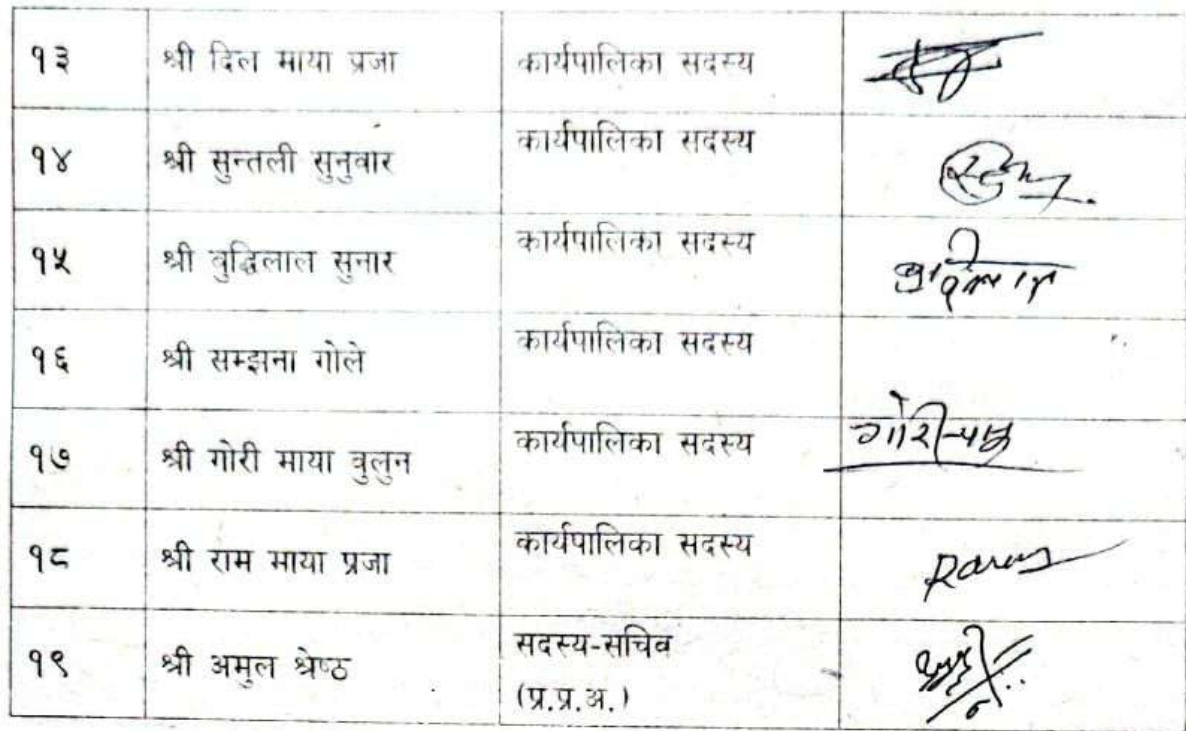 १३ श्री दिल माया प्रजा कार्यपालिका सदस्य
१४ श्री सुन्तली सुनुवार कार्यपालिका सदस्य
१५ श्री वुद्धिलाल सुनार कार्यपालिका सदस्य
१६ श्री सम्झना गोले कार्यपालिका सदस्य
१७ श्री गोरी माया वुलुन कार्यपालिका सदस्य
१८ श्री राम माया प्रजा कार्यपालिका सदस्य
१९ श्री अमुल श्रेष्ठ सदस्य-सचिव
(प्र.प्र.अ.)